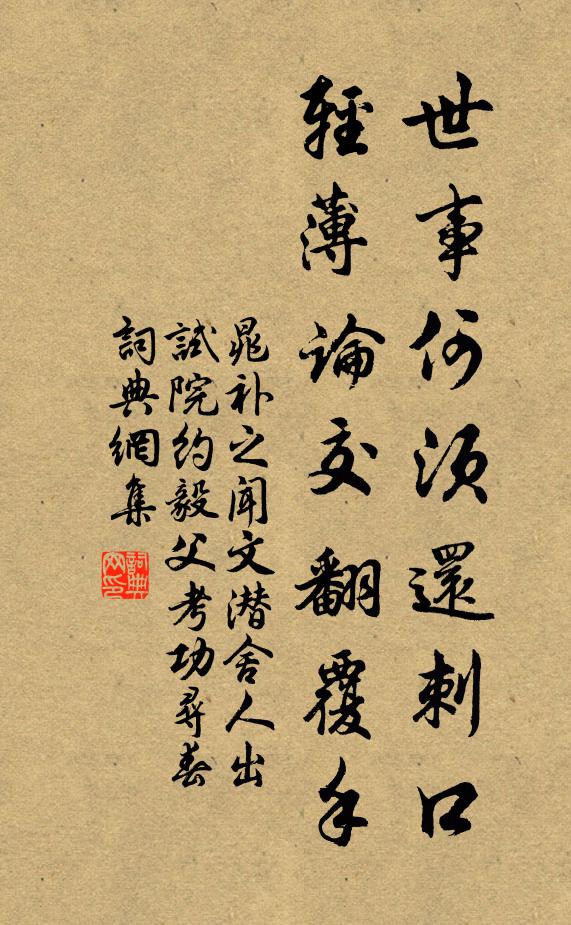 世事何須還刺口
輕薄論交翻覆手
晁补之聞文潜舍人出
試院約毅父考功尋春
詞典網集
詞典
网印